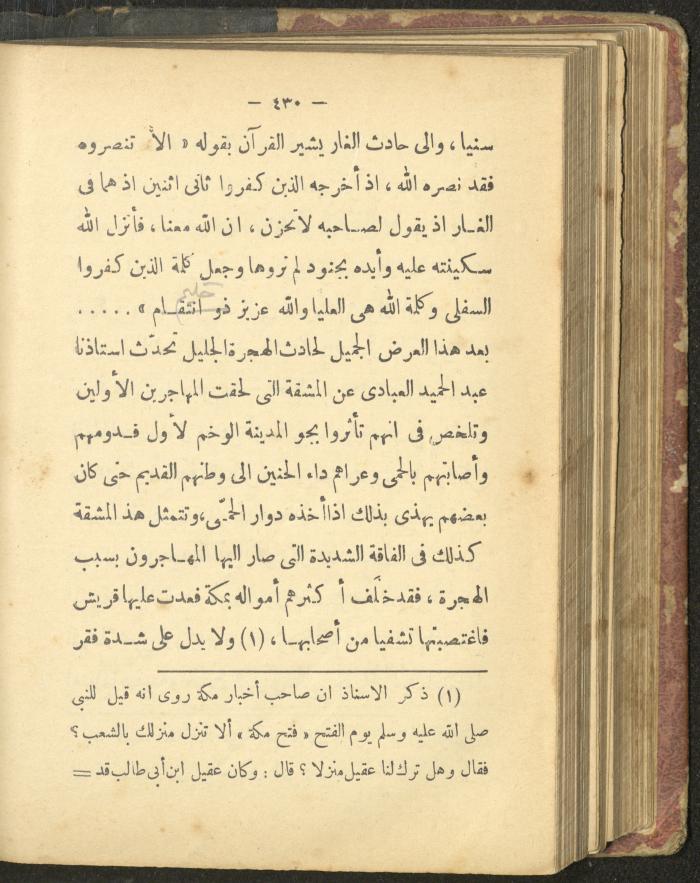 — ٤٣٠ —
سنيا ، والى حادث الغار يشير القرآن بقوله « الا تنصروه
فقد نصره الله ، اذ أخرجه الذين كفروا ثانى اثنين اذ هما فى
الغـار اذ يقول لصـاحبه لاتحزن ، ان الله معنا ، فأنزل الله
سـكينته عليه وأيده بجنود لم تروها وجعل كلمة الذين كفروا
حكيم
السفلى وكلمة الله هى العليا والله عزيز ذو انتقـام » . . . . .
بعد هذا العرض الجميل لحادث الهجرة الجليل تحدّث استاذنا
عبد الحميد العبادى عن المشقة التى لحقت المهاجرين الأولين
وتلخص فى انهم تأثروا بجو المدينة الوخم لأول قـدومهم
وأصابتهم بالحمى وعراهم داء الحنين الى وطنهم القديم حتى كان
بعضهم يهذى بذلك اذا أخذه دوار الحمّى ، وتتمثل هذ المشقة
كذلك فى الفاقة الشديدة التى صار اليها المهـاجرون بسبب
الهجرة ، فقد خلّف أ كثرهم أمواله بمكة فعدت عليها قريش
فاغتصبتها تشفيا من أصحابهـا ، (١) ولا يدل على شـدة فقر
(١) ذكر الاستاذ ان صاحب أخبار مكة روى انه قيل للنبي
صلى الله عليه وسلم يوم الفتح « فتح مكة » ألا تنزل منزلك بالشعب ؟
فقال وهل ترك لنا عقيل منزلا ؟ قال : وكان عقيل ابن أبى طالب قد =